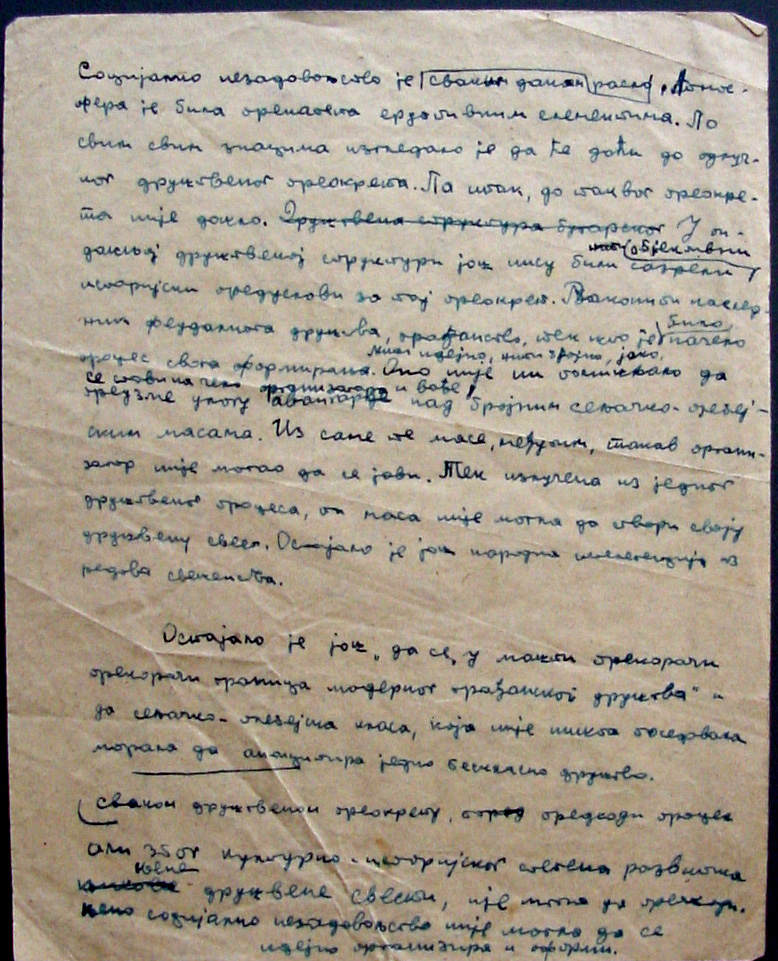 Социјално незадовољство је сваким даном расло. Атмос-
фера је била препуњена еруптивним елементима. По
свим свим знацима изгледало је да ће доћи до одлуч-
ног друштвеног преокрета. Па ипак, до таквог преокре-
та није дошло. Друштвена структура бугарског У он-
дашњој друштвеној структури још нису били сазрели
објективни
историјски предуслови за тој преокрет. Законити наслед-
ник феудалнога друштва, грађанство, тек што је начело
било
процес свога формирања. Оно није ни помишљало да
нити идејно, нити бројно, јако,
се стави на чело организатора и вође
преузме улогу авангарде над бројним сељачко-плебеј-
ским масама. Из саме те масе, међутим, такав органи-
затор није могао да се јави. Тек излучена из једног
друштвеног процеса, та маса није могла да створи своју
друштвену свест. Остајало је још народна интелигенција из
редова свештенства.
Остајало је још „да се, у машти прекорачи
прекорачи граница модерног грађанског друштва" и
да сељачко-плебејска класа, која није ништа поседовала
морала да антиципира једно бескласно друштво.
Сваком друштвеном преокрету, предходи процес
али због културно-историјског степена развитка
њене
друштвене свести, није могла да прекорачи.
њено социјално незадовољство није могло да се
идејно организира и оформи.